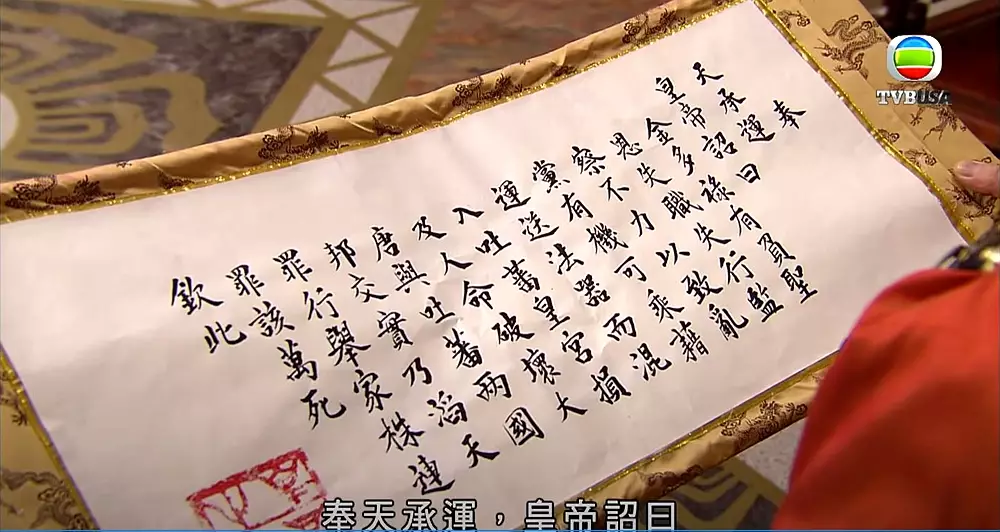 奉
天承運
皇帝詔曰
金多祿有負聖
恩失職失行監
察不力以致亂
黨有機可乘藉
運送法器而混
入吐蕃皇宮損
及人命破壞大
唐與吐蕃兩國
邦交實乃滔天
罪行舉家株連
罪該萬死
欽此
TVBUSA
奉天承運，皇帝詔曰